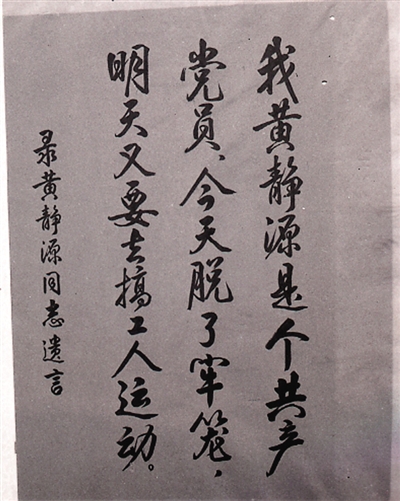 我黄静源是个共产
党员、今天脱了牢笼，
明天又要去搞工人运动。
录黄静源同志遗言